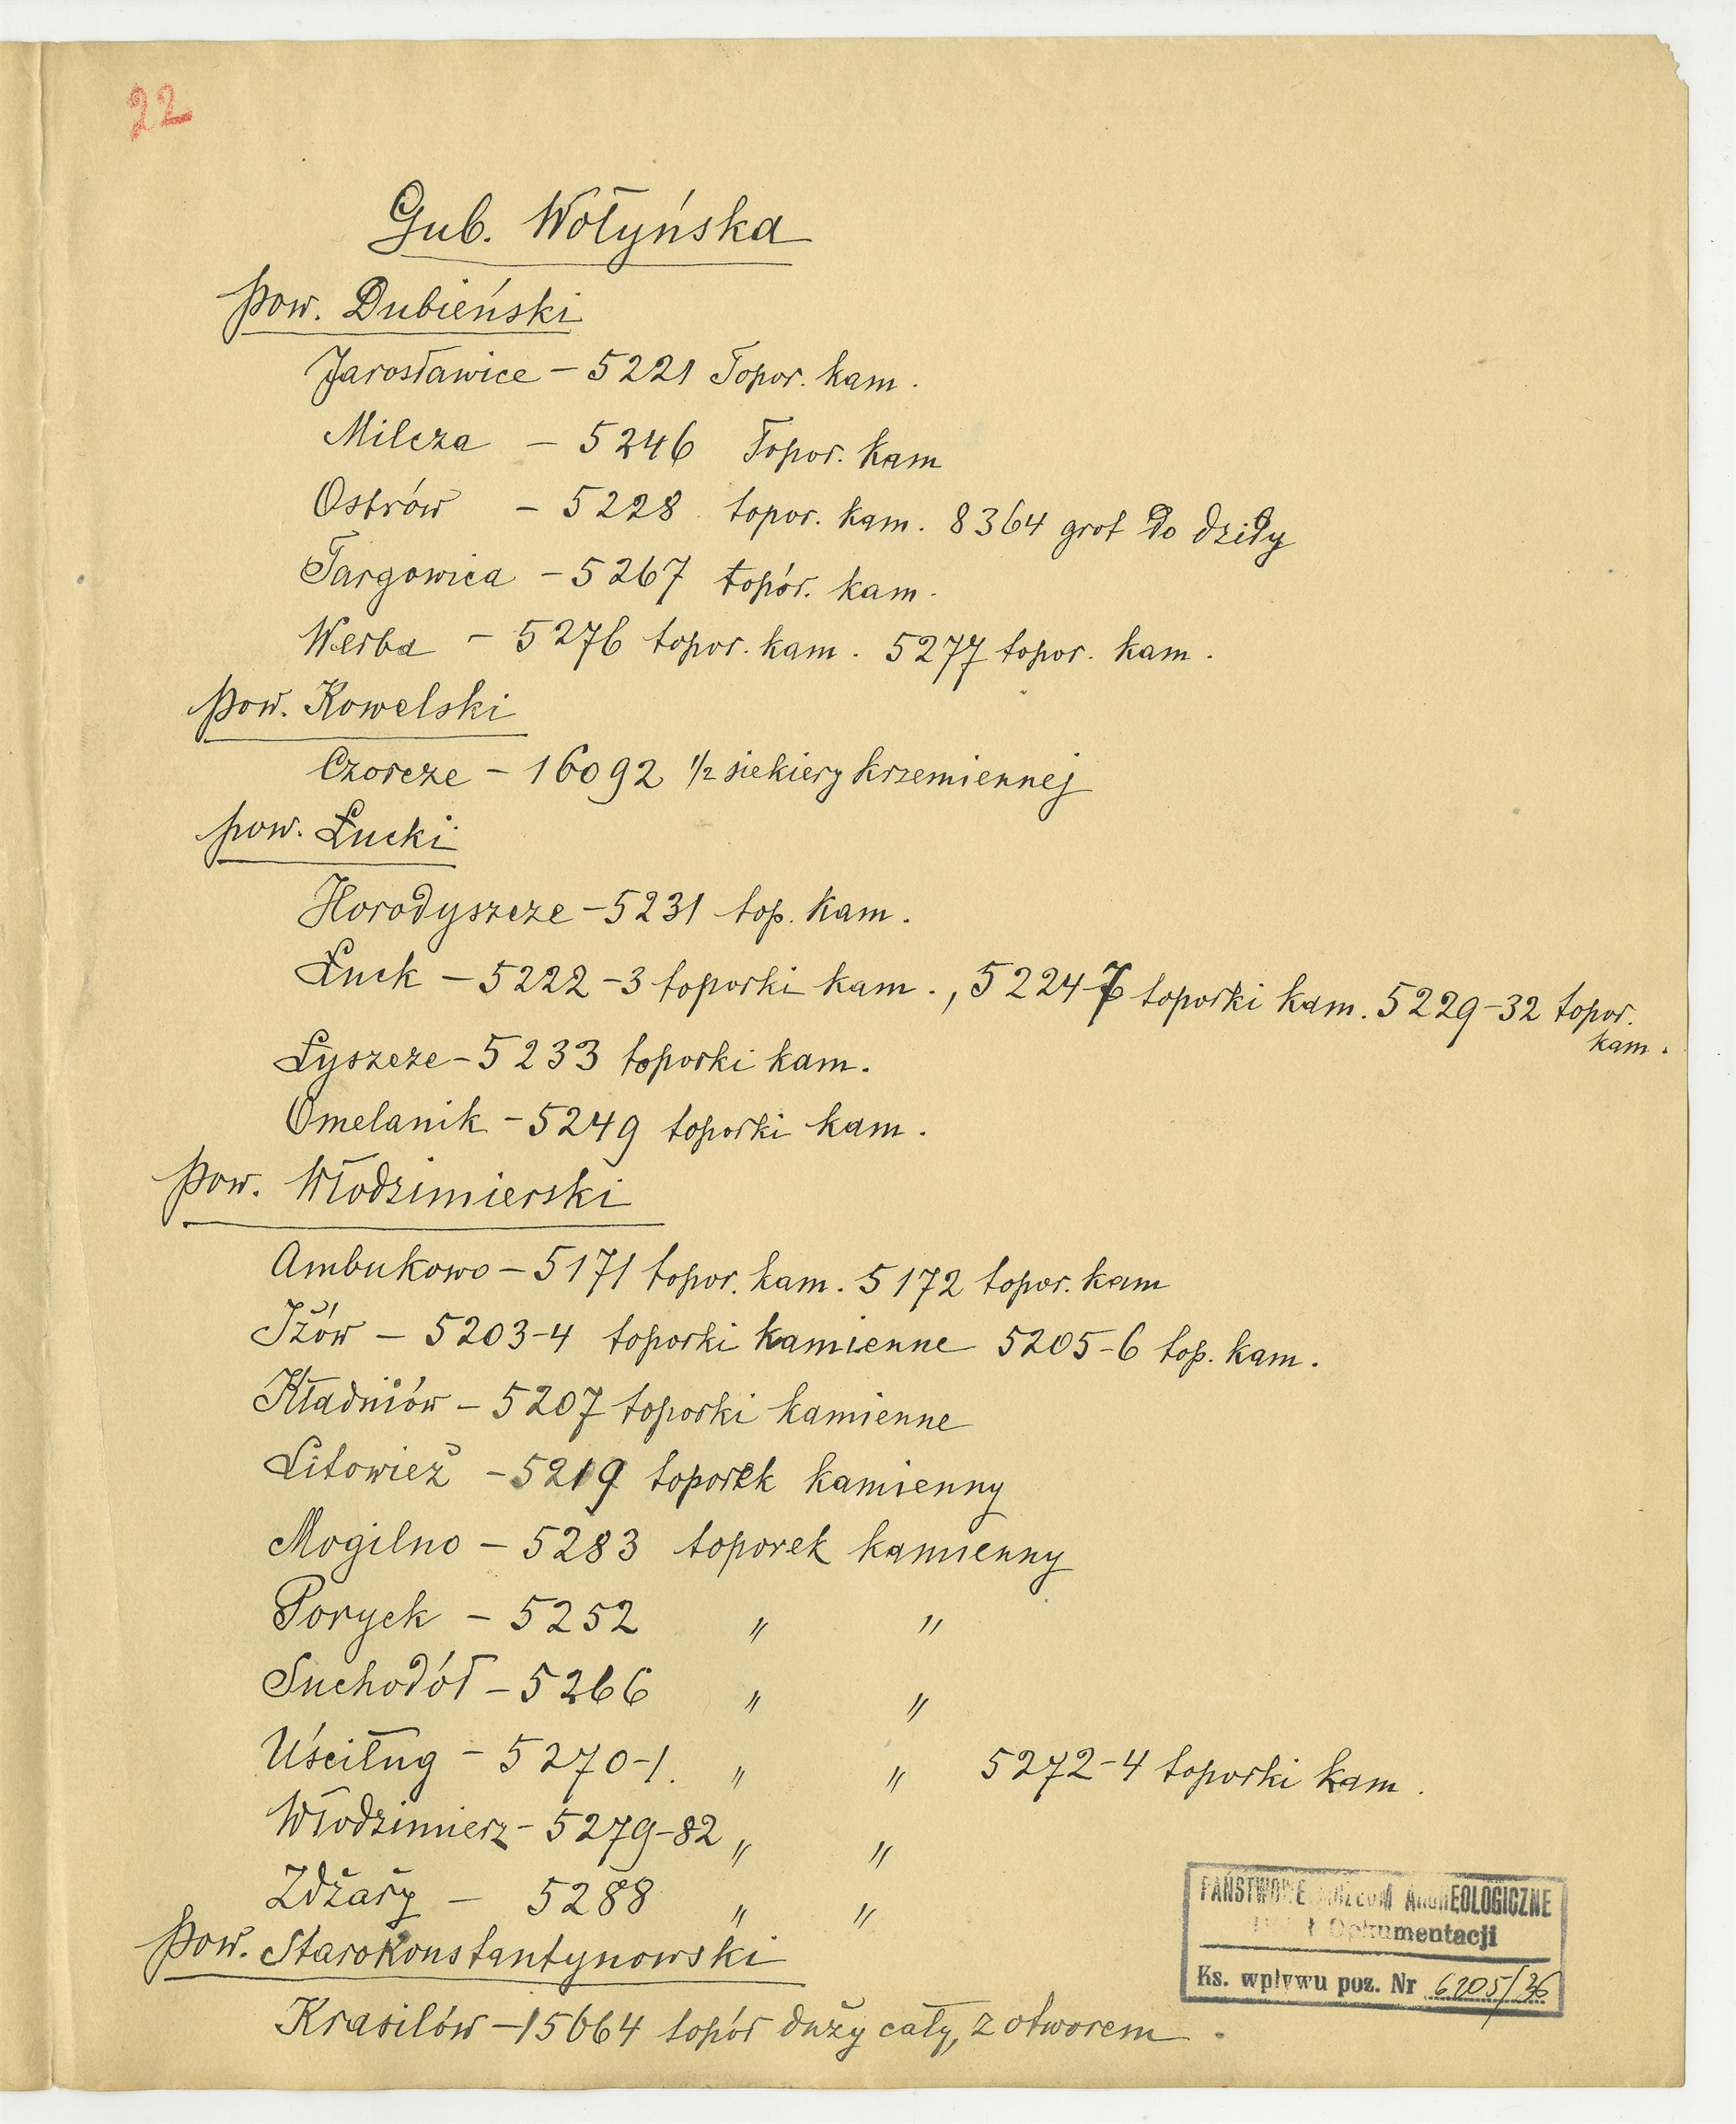 22
Gub. Wołyńska
pow. Dubieński
Jarosławice – 5221 Topor. kam.
Milcza – 5246 Topor. kam
Ostrów – 5228 topor. kam. 8364 grot do dzidy
Targowica – 5267 topór. kam.
Werba – 5276 topor. kam. 5277 topor. kam.
pow. Kowelski
Czorcze – 16092 ½ siekiery krzemiennej
pow. Łucki
Horodyszcze – 5231 top. kam.
Łuck – 5222-3 toporki kam., 5224 toporki kam. 5229-32 topor.
kam.
Łyszcze – 5233 toporki kam.
Omelanik – 5249 toporki kam.
pow. Włodzimierski
Ambukowo – 5171 topor. kam. 5172 topor. kam
Iżów – 5203-4 toporki kamienne 5205-6 top. kam.
Kładniów – 5207 toporki kamienne
Litowież – 5219 toporek kamienny
Mogilno – 5283 toporek kamienny
Poryck – 5252 " "
Suchodół – 5266 " "
Uściług – 5270-1. " " 5272-4 toporki kam.
Włodzimierz – 5279-82 " "
Zdżary – 5288 " "
pow. Starokonstantynowski
Krasilów – 15664 topór duży cały, z otworem
PAŃSTWOWE MUZEUM ARCHEOLOGICZNE
Dokumentacji
Ks. wpływu poz. Nr 6205/36